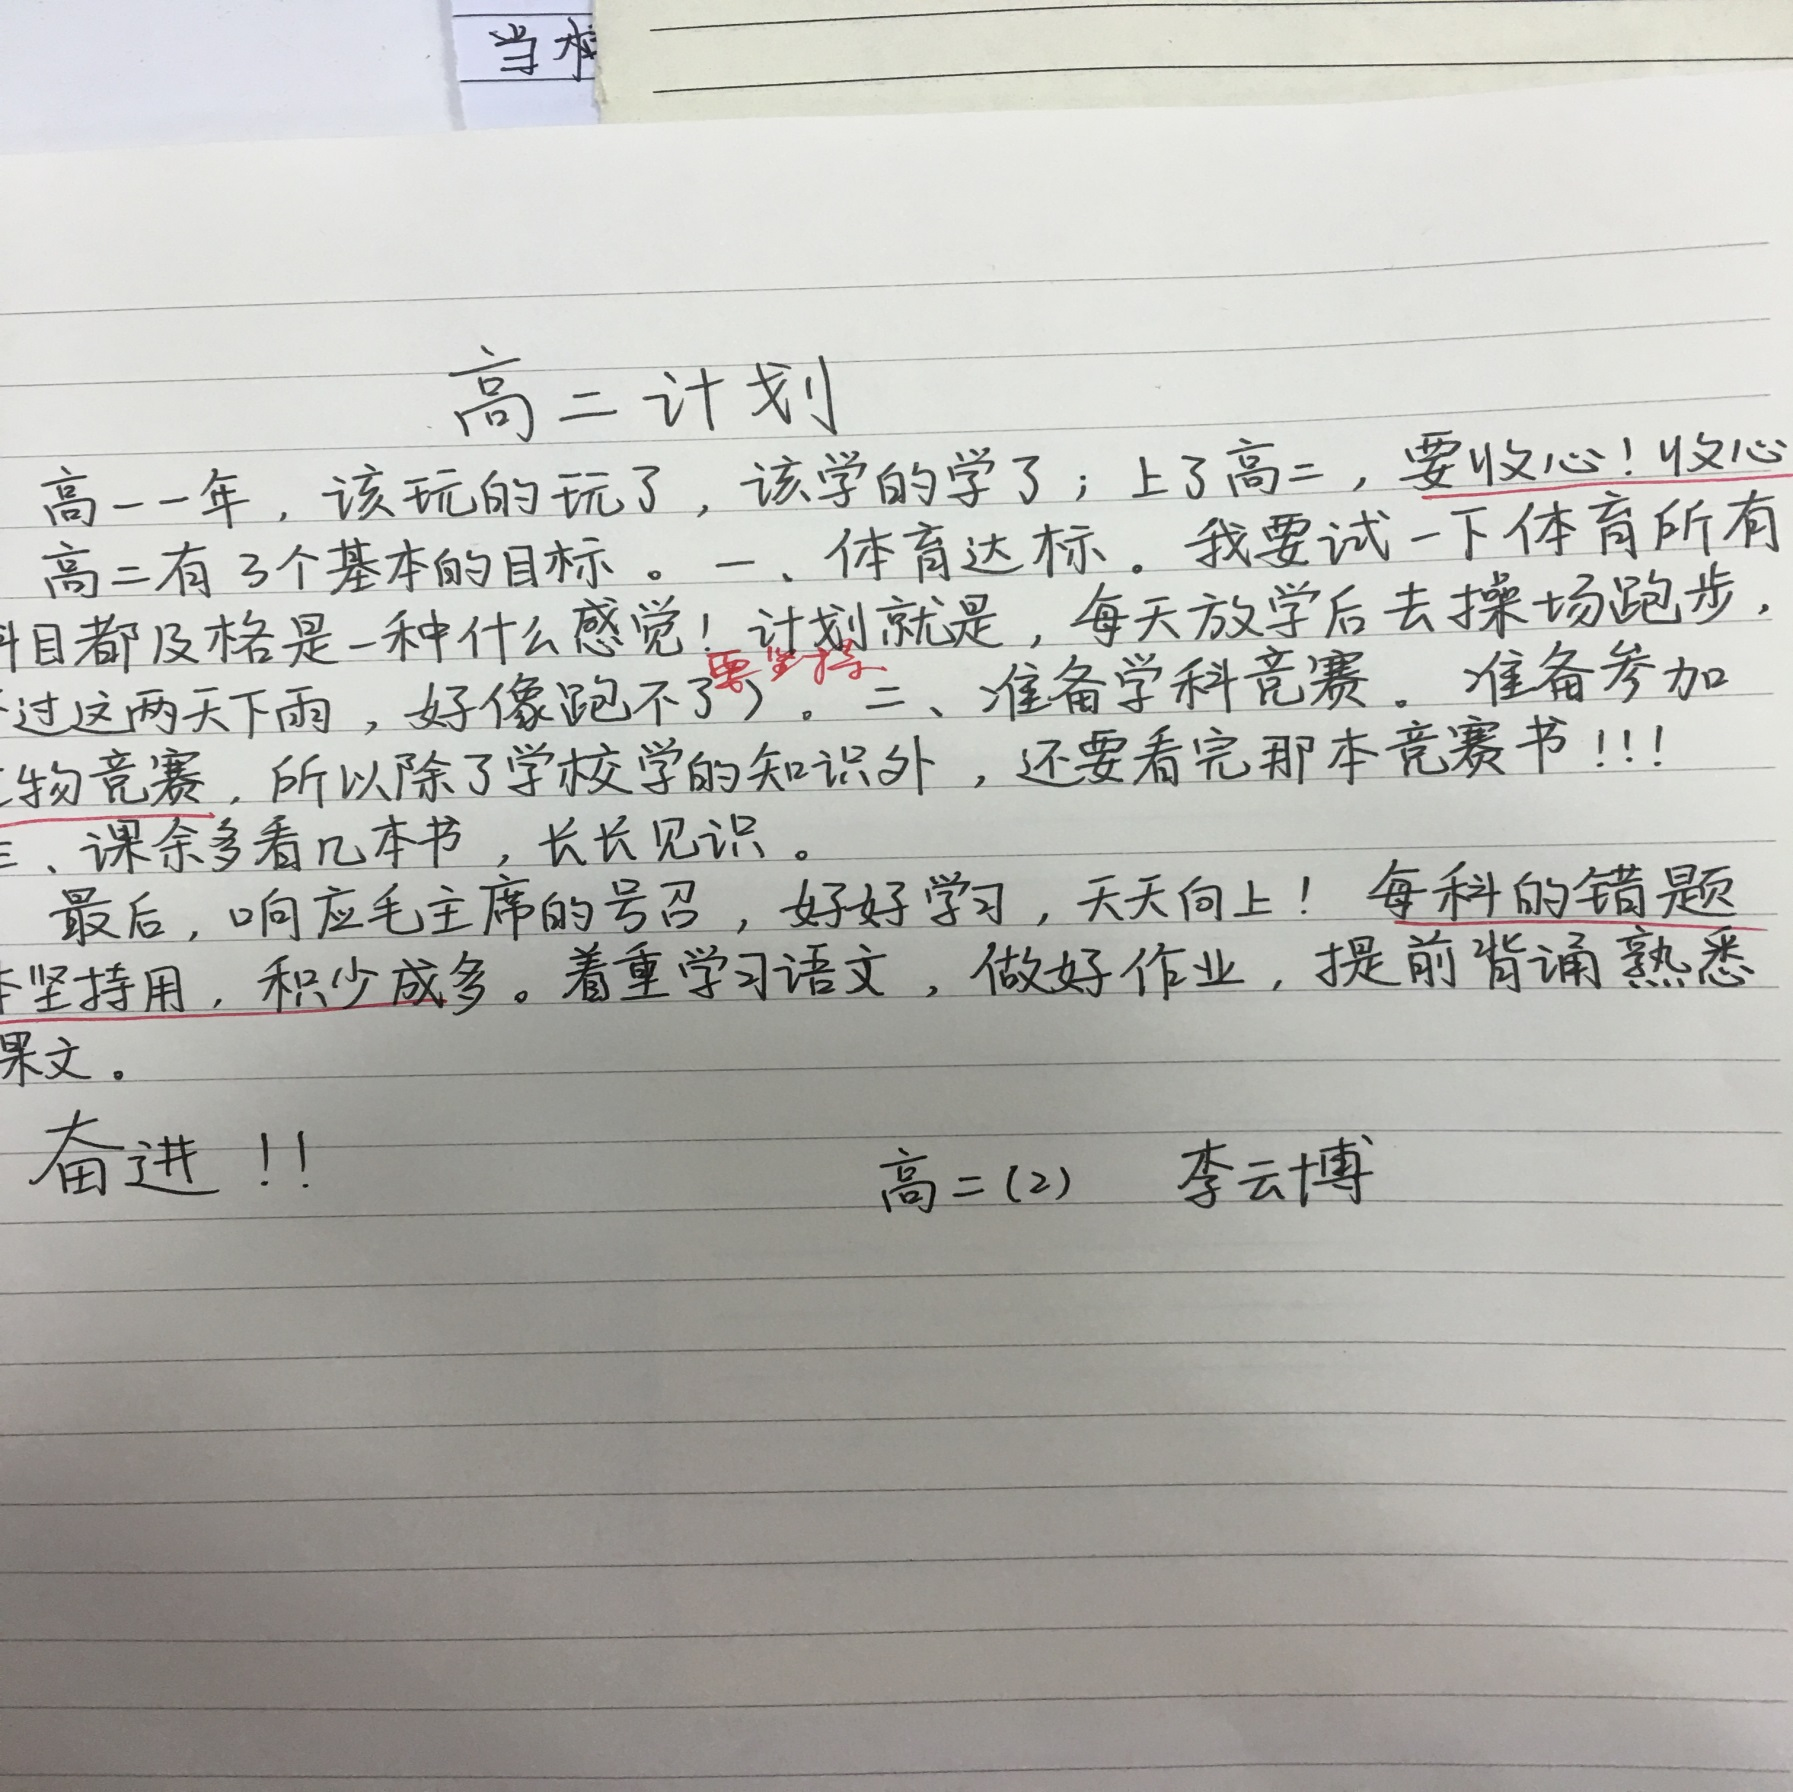 当
高二计划
高一一年，该玩的玩了，该学的学了；上了高二，要收心！收心
高二有3个基本的目标。一、体育达标。我要试一下体育所有
科目都及格是一种什么感觉！计划就是，每天放学后去操场跑步，
要坚持
过这两天下雨，好像跑不了）。二、准备学科竞赛。准备参加
物竞赛，所以除了学校学的知识外，还要看完那本竞赛书！！！
三、课余多看几本书，长长见识。
最后，响应毛主席的号召，好好学习，天天向上！每科的错题
本坚持用，积少成多。着重学习语文，做好作业，提前背诵熟悉
课文。
奋进！！
高二(2) 李云博